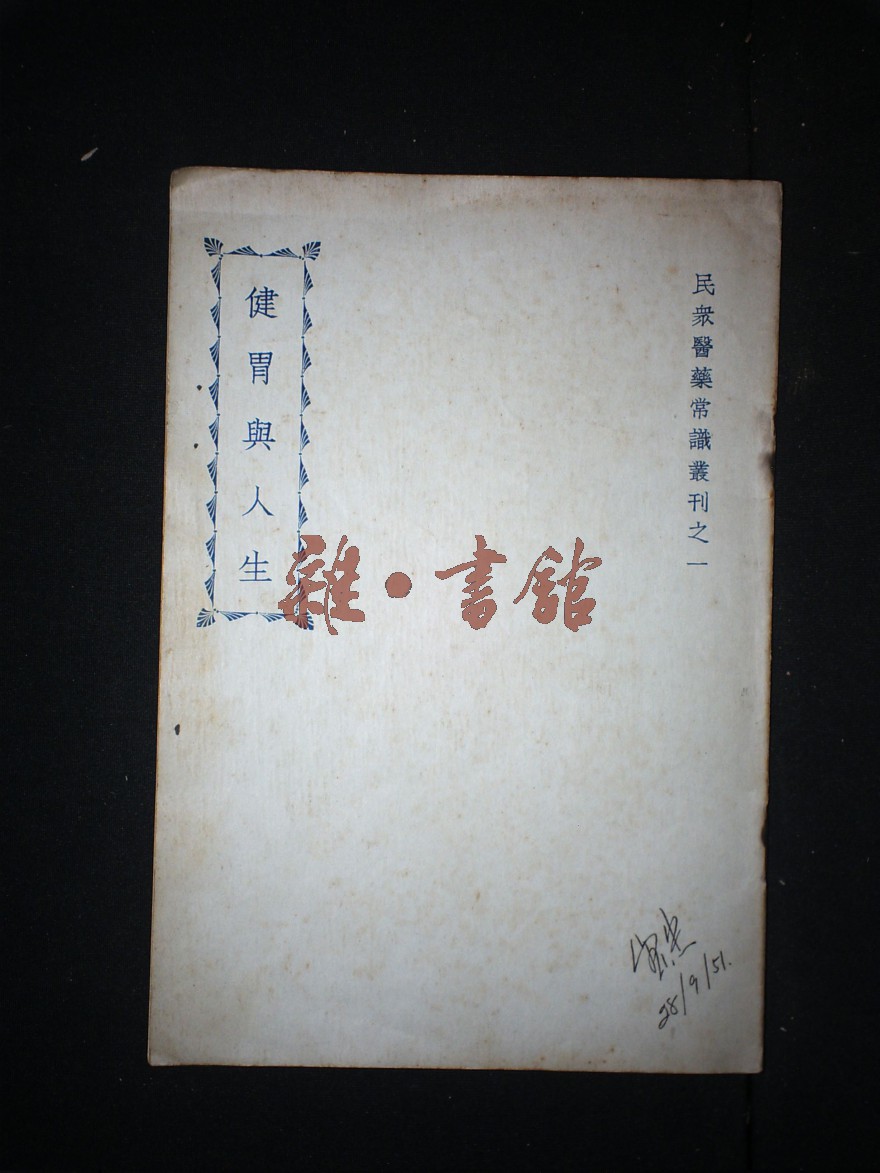 民衆醫藥常識叢刊之一
健胃與人生
雜•書舘
28/9/51.